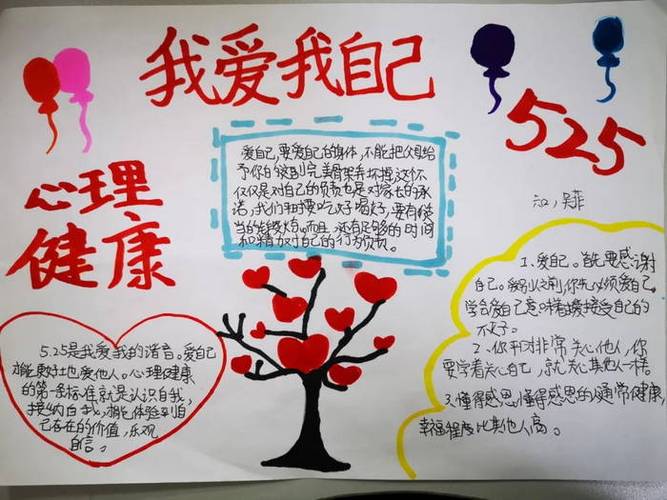 我爱我自己
525
心理
健康
爱自己,要爱自己的身体,不能把父母给
予你的完美骨架弄坏掉这不
仅仅是对自己的负责也是对家长的承
诺,我们平时要吃好喝好,要有适
当的锻炼。而且,还有足够的时间
和精力对自己的行为负责。
1、爱自己。首先要感谢
自己。你先必须爱自己。
学会爱自己意味着接受自己的
不好。
2、你平时非常关心他人,你
要学着关心自己,就关心其他人一样。
3、懂得感恩。懂得感恩的人通常健康,
幸福程度比其他人高。
5.25是我爱我的谐音。爱自己
才能更好地爱他人。心理健康
的第一条标准就是认识自我,
接纳自我。能体验到自
己存在的价值,乐观
自信。